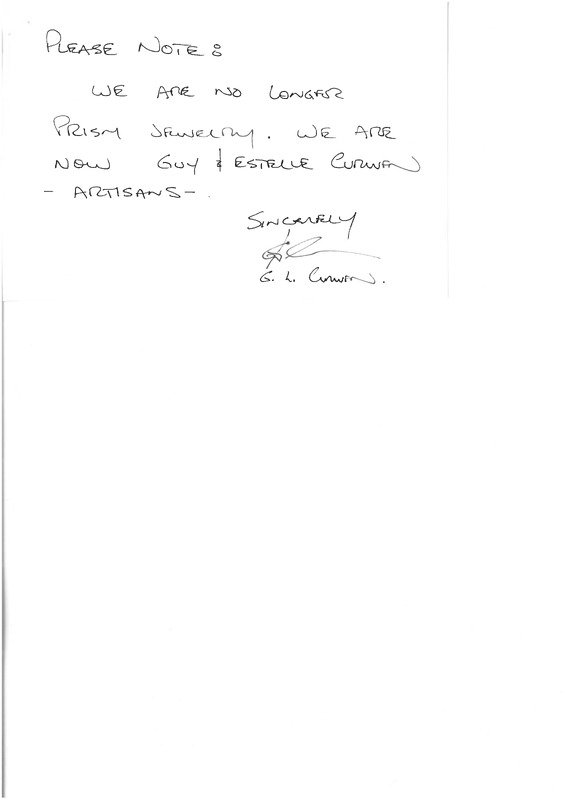 PLEASE NOTE:
WE ARE NO LONGER
PRISM JEWELRY. WE ARE
NOW GUY & ESTELLE CURWEN
- ARTISANS - .
SINCERELY
G. L. CURWEN.